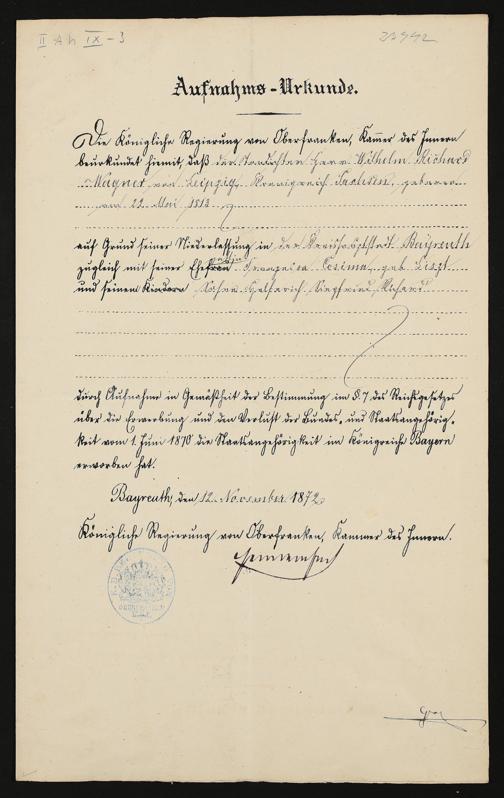 II Ah IX - 3
23992
Aufnahms-Urkunde.
Die Königliche Regierung von Oberfranken, Kam̅er des Innern
beurkundet hiemit, daß der Tondichter Herr Wilhelm Richard
Wagner von Leipzig, Königreich Sachsen, geboren
am 22. Mai 1813
auf Grund seiner Niederlassung in der Kreishauptstadt Bayreuth
zugleich mit seiner Ehefrau Franziska Cosima, geb. Liszt
und seinem Kindern Sohne Helferich Siegfried Richard
durch Aufnahme in Gemäßheit der Bestimmung im §. 7 des Reichsgesetzes
über die Erwerbung und den Verlust der Bundes- und Staatsangehörig-
keit vom 1. Juni 1870 die Staatsangehörigkeit im Königreiche Bayern
erworben hat.
Bayreuth, den 12. November 1872
Königliche Regierung von Oberfranken, Kammer des Innern.